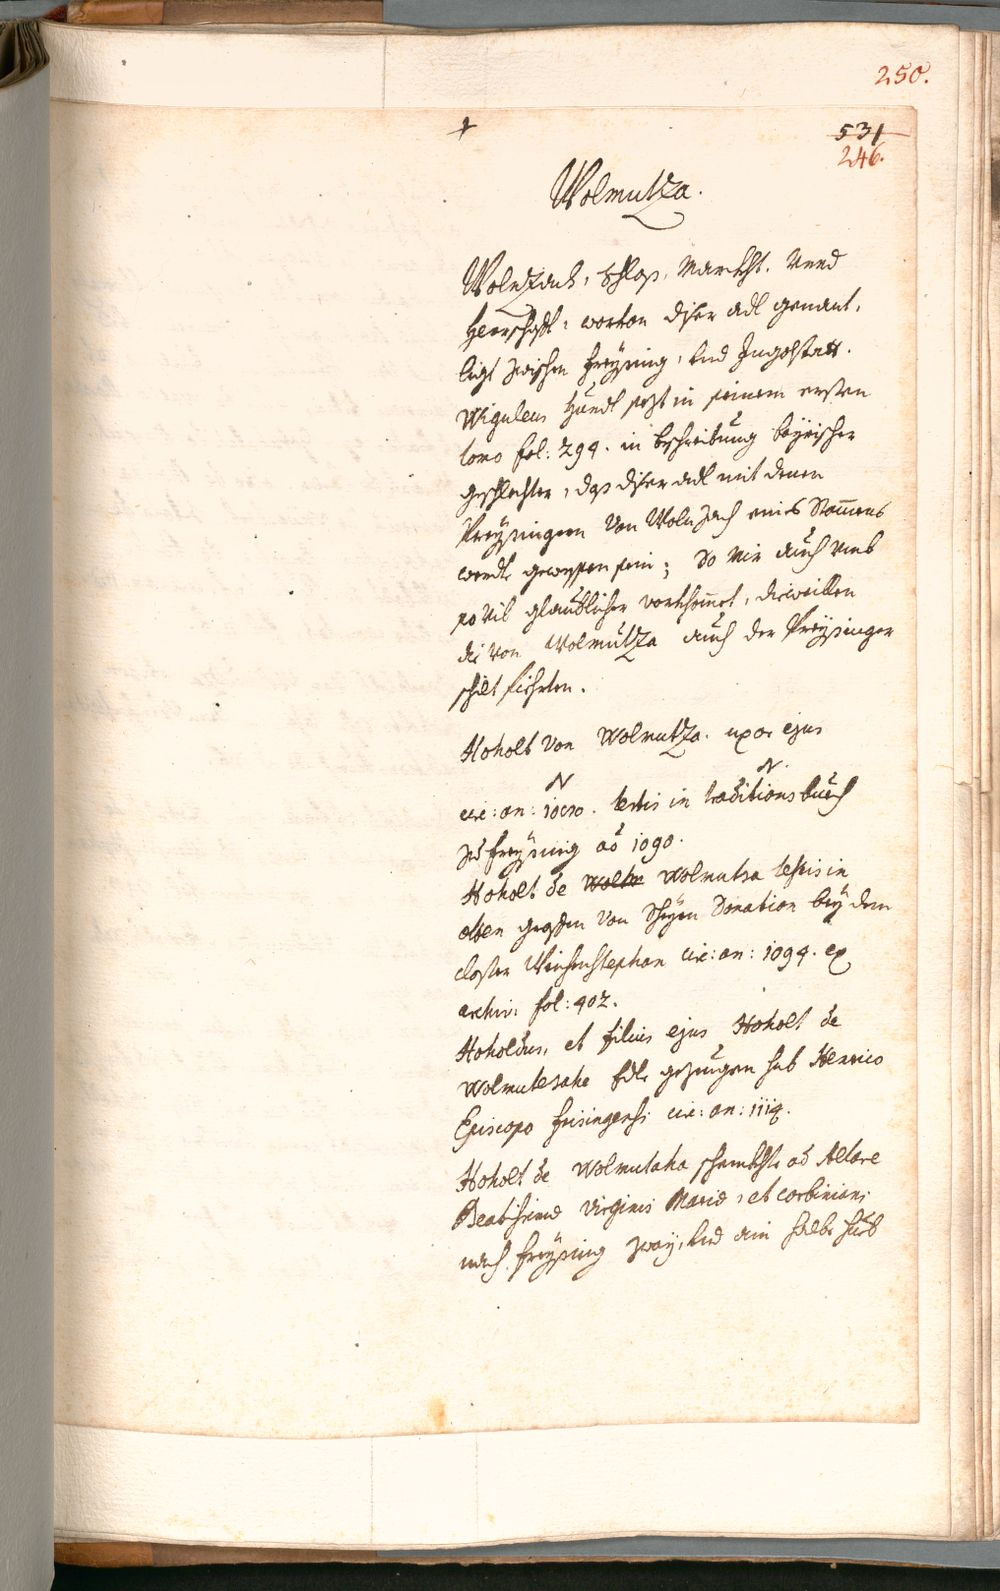 250.
531
246.
Wolmutza.
Wolnzach, Schloß, Marckht. Vnnd
Herrschafft, worvon diser adl genant,
ligt zwischen Freÿsing, vnd Ingolstatt.
Wiguleus Hündt sezt in seinem ersten
tomo fol: 294. in beschreibung baÿrischer
geschlechter, daß diser adl mit denen
Preÿsingern von Wolnzach eines Stam̄ens
werdt gewessen sein; So mir auch vmb
so vil glaublicher vorkhom̄et, dieweillen
die von Wolmutza auch der Preÿsinger
schilt fiehrten.
Hoholt von Wolmutza. uxor ejus
N N.
circ: an: testis in traditionsbuech
zu Freÿsing ao 1090.
Hoholt de Wolm Wolmutsa testis in
alten grafen von Scheÿrn Donation beÿ dem
closter Weichenstephan circ: an: 1094. ex
archiv: fol: 402.
Hoholdus, et filius ejus Hoholt de
Wolmutesahe Edle gezeugen sub Henrico
Episcopo frisingensi circ: an: 1114.
Hoholt de Wolmutaha schenckhte ad Altare
Beatissimæ Virginis Mariæ, et corbiniani
nach Freÿsing zwaÿ, vnd ain halbe hueb